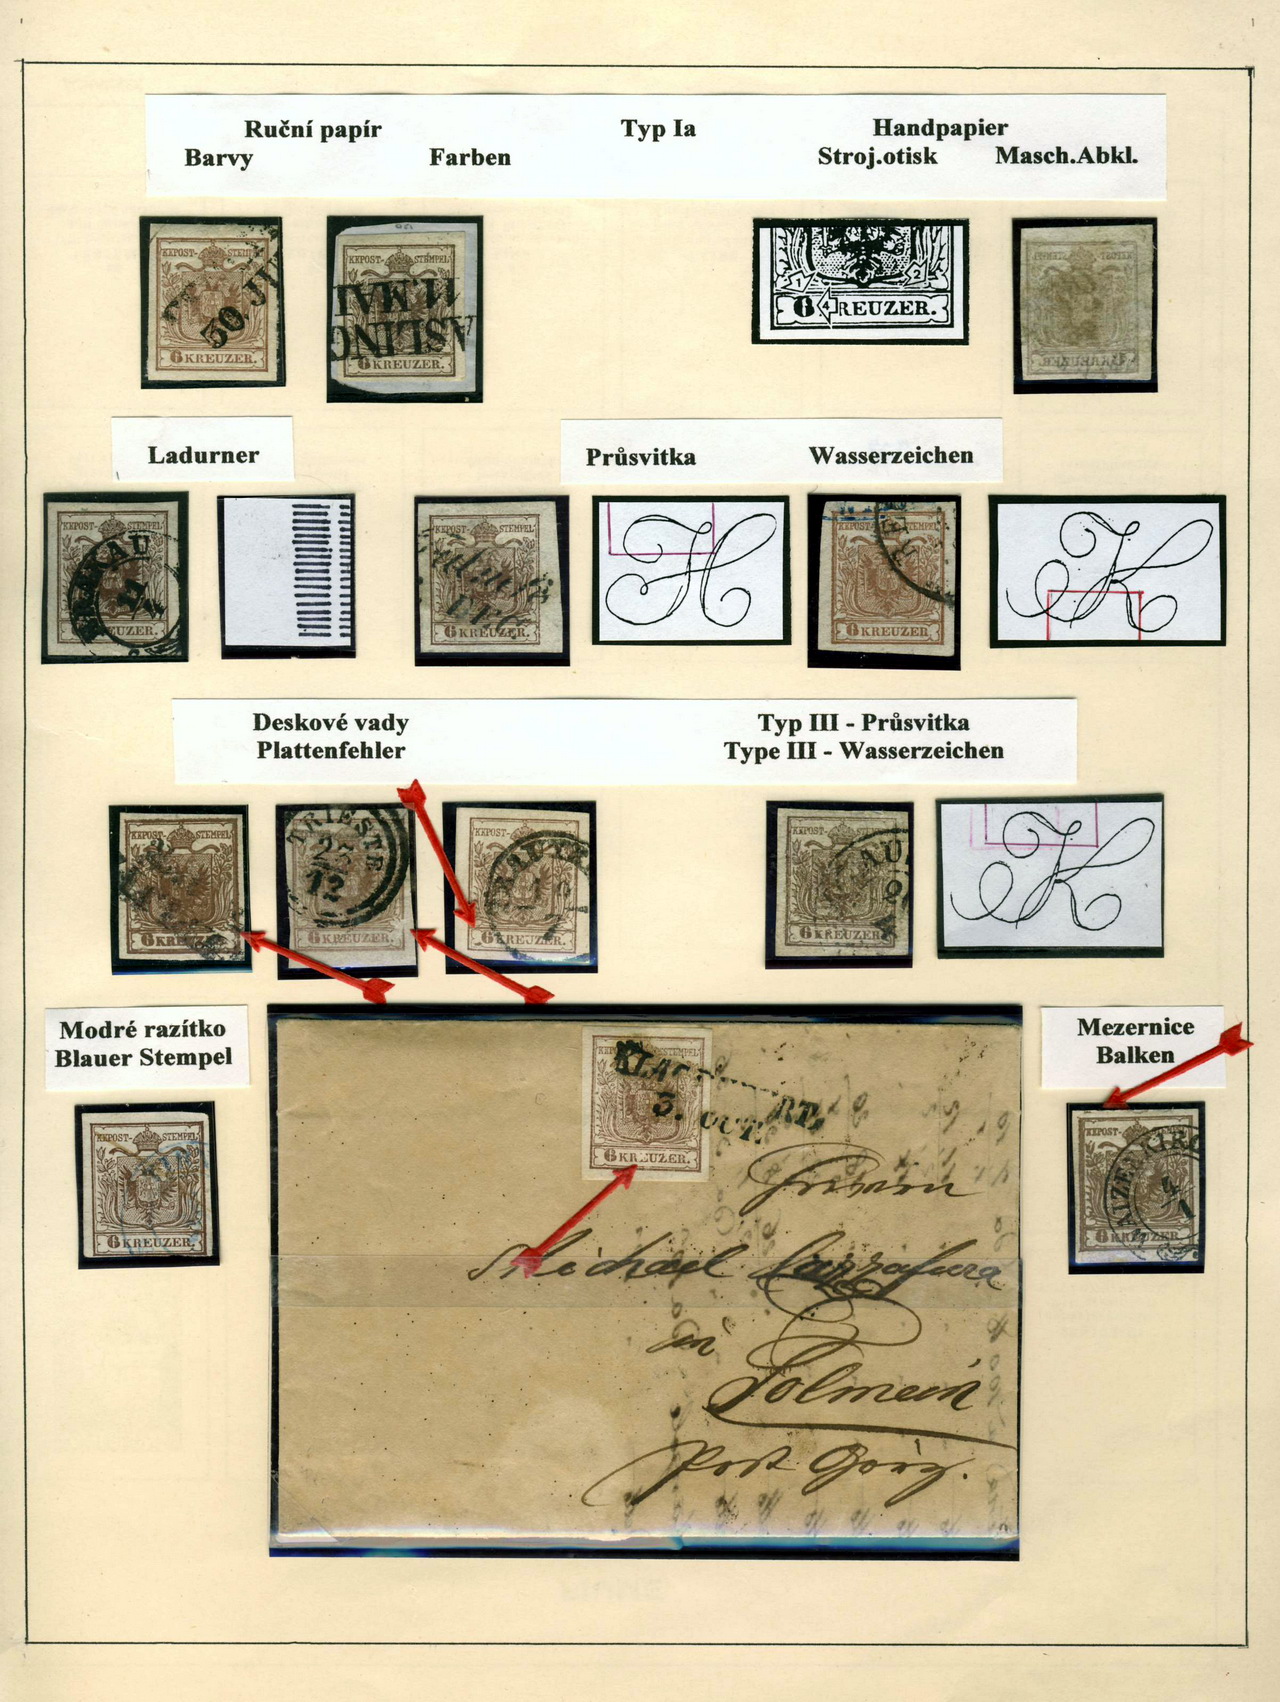 Ruční papír Typ Ia Handpapier
Barvy Farben Stroj.otisk Masch.Abkl.
KKPOST-STEMPEL
30. JU
6 KREUZER.
KKPOST-STEMPEL
11. MAI
6 KREUZER.
1 2
6 4 REUZER.
Ladurner
Průsvitka Wasserzeichen
KKPOST-STEMPEL
KREUZER.
KKPOST-STEMPEL
6 KREUZER.
H
KKPOST-STEMPEL
6 KREUZER.
K
Deskové vady
Plattenfehler
Typ III - Průsvitka
Type III - Wasserzeichen
KKPOST-STEMPEL
6 KREUZER.
TRIESTE
12
6 KREUZER.
KKPOST-STEMPEL
6 KREUZER.
KKPOST-STEMPEL
6 KREUZER.
K
Modré razítko
Blauer Stempel
Mezernice
Balken
KKPOST-STEMPEL
6 KREUZER.
KLAG RT.
3. OCT.
6 KREUZER.
KKPOST-STEMPEL
6 KREUZER.
Herrn
Michael
in
Tolmein
Post Görz.